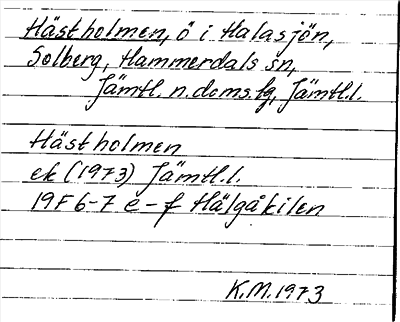 Hästholmen, ö i Halasjön,
Solberg, Hammerdals sn,
Jämtl. n. doms.lg, Jämtl.l.
Hästholmen
ek (1973) Jämtl.l.
19F 6-7 e-f Hälgåkilen
K.M. 1973